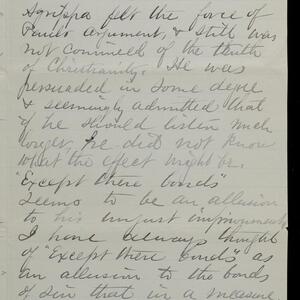 Agrippa felt the force of
Pauls argument, & still was
not convinced of the truth
of Christianity. He was
persuaded in some degree
& seemingly admitted that
if he should listen much
longer, he did not know
what the effect might be.
"Except these bonds"
seems to be an allusion
to his unjust imprisonment
I have always thought
of "Except these bonds" as
an allusion to the bonds
of sin that in a measure